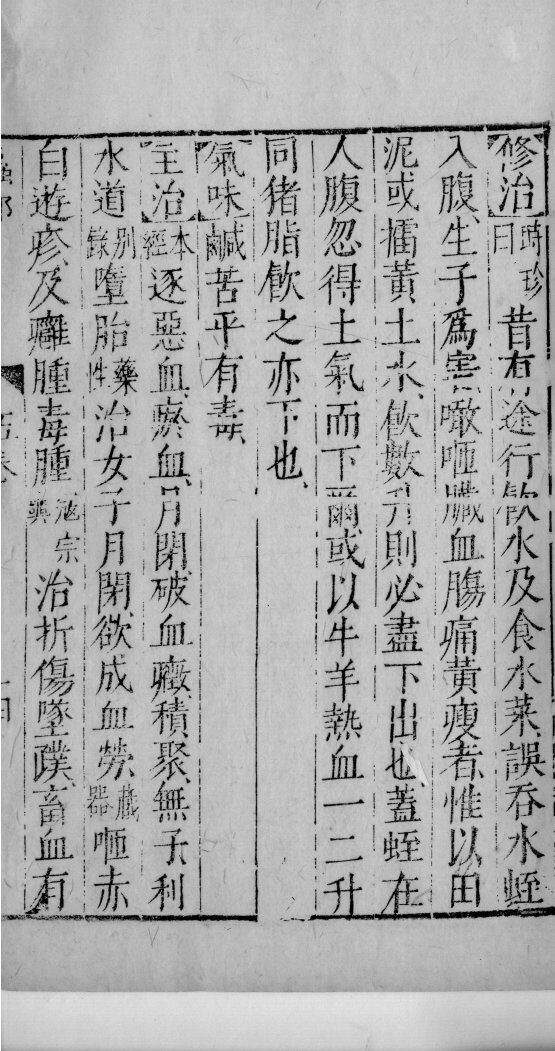 修治時珍曰昔有途行飲水及食水菜誤吞水蛭
入腹生子為害噉咂臟血腸痛黃瘦者惟以田
泥或擂黃土水飲數升則必盡下出也蓋蛭在
人腹忽得土氣而下爾或以牛羊熱血一二升
同猪脂飲之亦下也
氣味鹹苦平有毒
主治本經逐惡血瘀血月閉破血癥積聚無子利
水道别錄墮胎藥性治女子月閉欲成血勞藏器咂赤
白遊疹及癰腫毒腫宼宗奭治折傷墜蹼畜血有